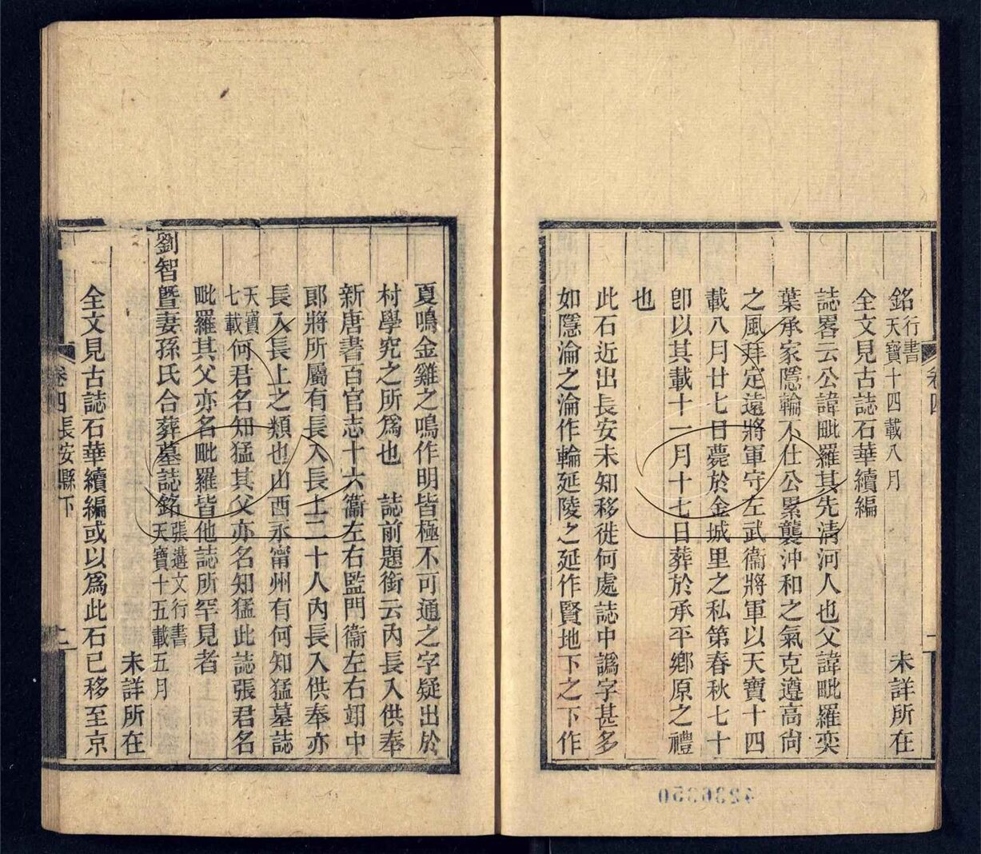 銘 行書 天寶十四載八月 未詳所在
全文見古誌石華續編
誌畧云公諱毗羅其先清河人也父諱毗羅奕
葉承家隱輪不仕公累襲沖和之氣克遵高尙
之風拜定遠將軍守左武衞將軍以天寶十四
載八月廿七日薨於金城里之私第春秋七十
卽以其載十一月十七日葬於承平鄉原之禮
也
此石近出長安未知移徙何處誌中譌字甚多
如隱淪之淪作輪延陵之延作賢地下之下作
夏鳴金雞之鳴作明皆極不可通之字疑出於
村學究之所爲也 誌前題銜云內長入供奉
新唐書百官志十六衞左右監門衞左右翊中
郎將所屬有長入長上二十人內長入供奉亦
長入長上之類也山西永甯州有何知猛墓誌
天寶七載何君名知猛其父亦名知猛此誌張君名
毗羅其父亦名毗羅皆他誌所罕見者
劉智曁妻孫氏合葬墓誌銘 張遘文行書 天寶十五載五月 未詳所在
全文見古誌石華續編或以爲此石已移至京
卷四長安縣下